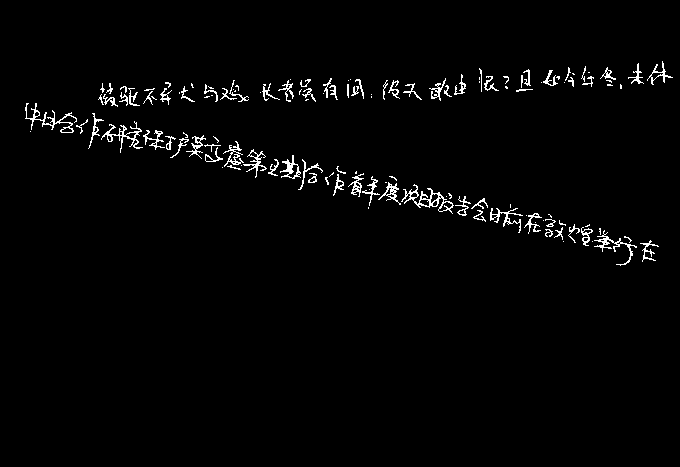 被驱不异犬与鸡。长者虽有问,役夫敢申恨?且如今年冬,未休
中日合作研究保护莫高窟第五期合作首年度项目报告会日前在敦煌举行在